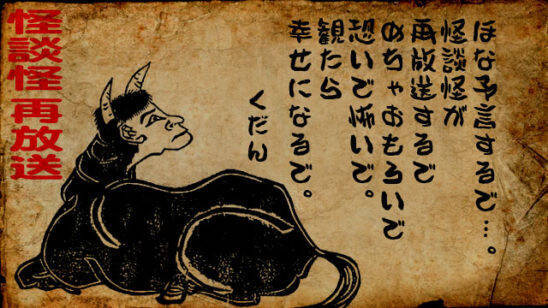 怪談怪 再放送
ほな予言するで…。
怪談怪が
再放送するで
めちゃおもろいで
恐いで怖いで。
観たら
幸せになるで。
くだん